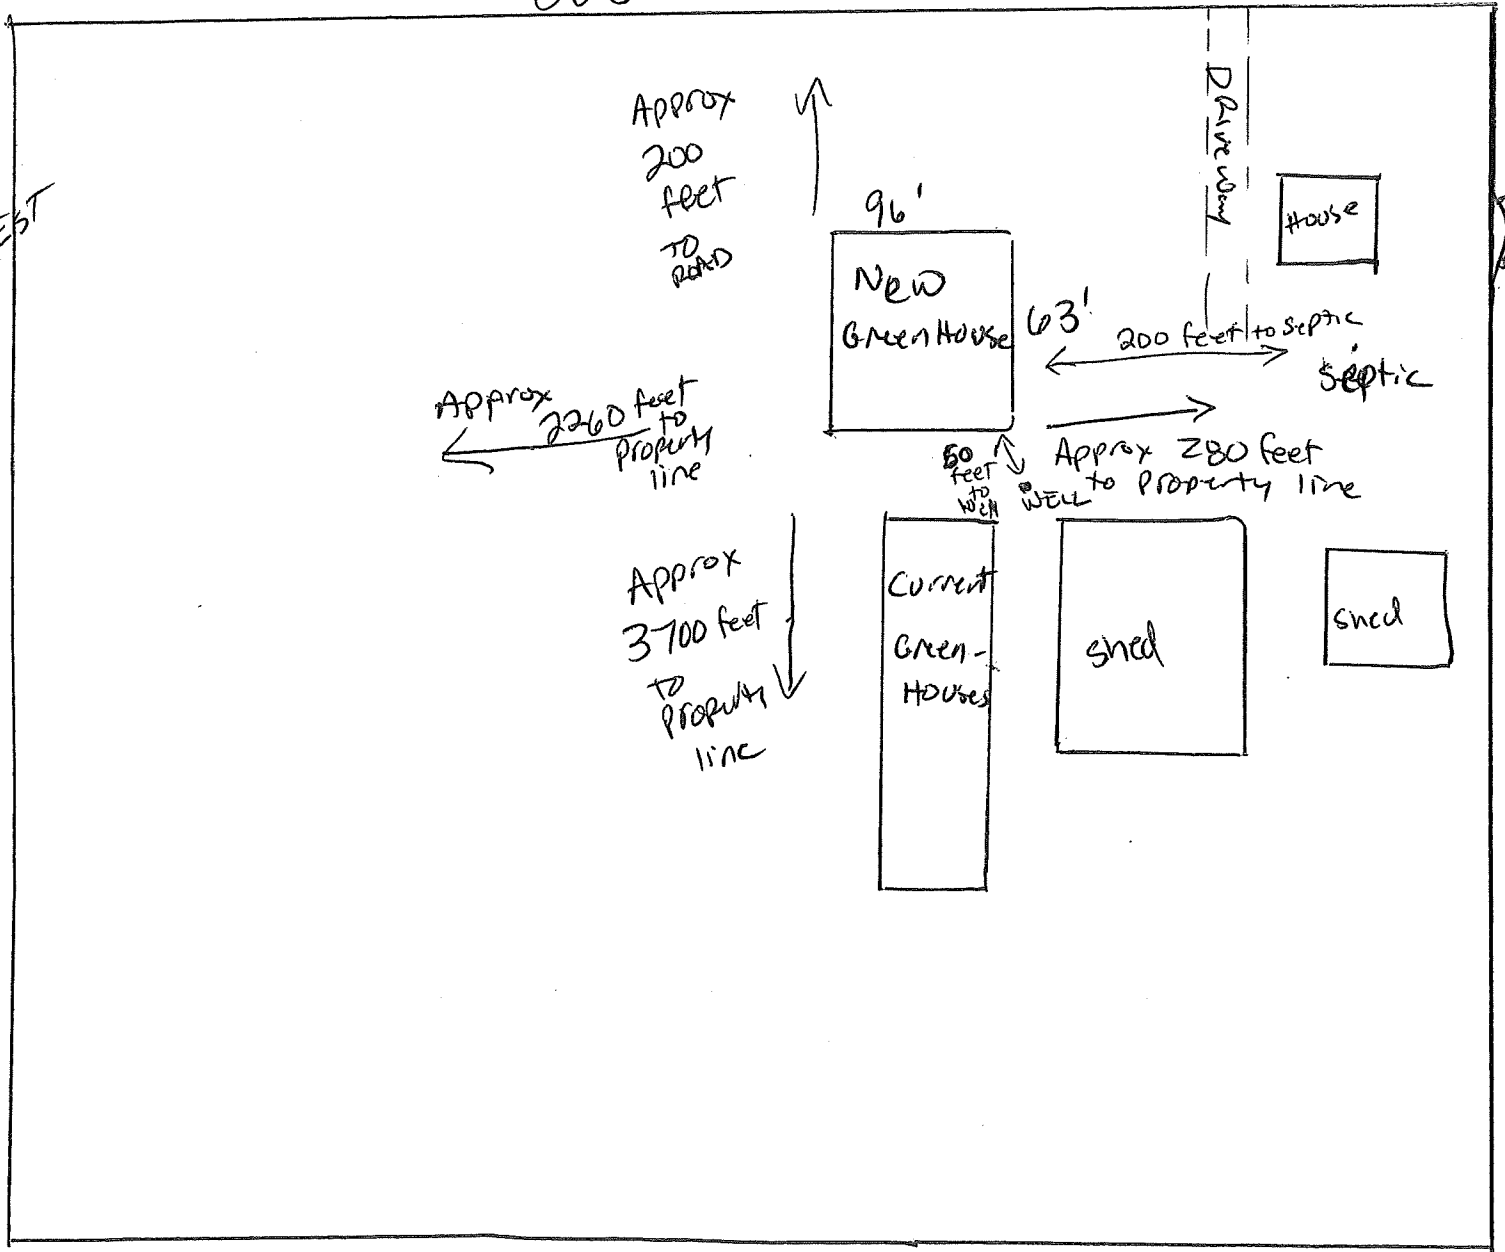 Approx
200
feet
TO
ROAD
DRiveway
House
96'
New
GreenHouse
63'
200 feet to septic
septic
Approx
2260 feet
to
property
line
Approx 280 feet
to Property line
50
feet
to
well
WELL
Approx
3700 feet
to
Property
line
Current
Green-
Houses
shed
shed